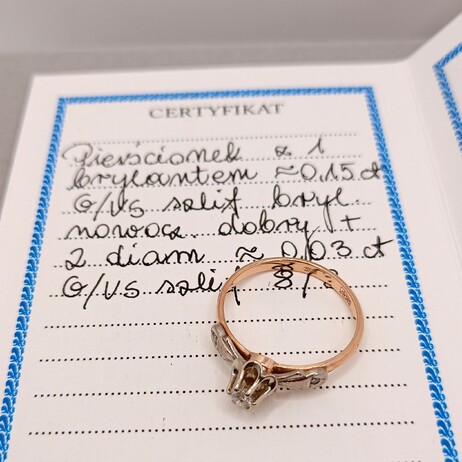 CERTYFIKAT
Pierścionek z 1
brylantem ≈ 0.15 ct
G/VS szlif bryl.
nowocz. dobry +
2 diam ≈ 0,03 ct
G/VS szlif 8/